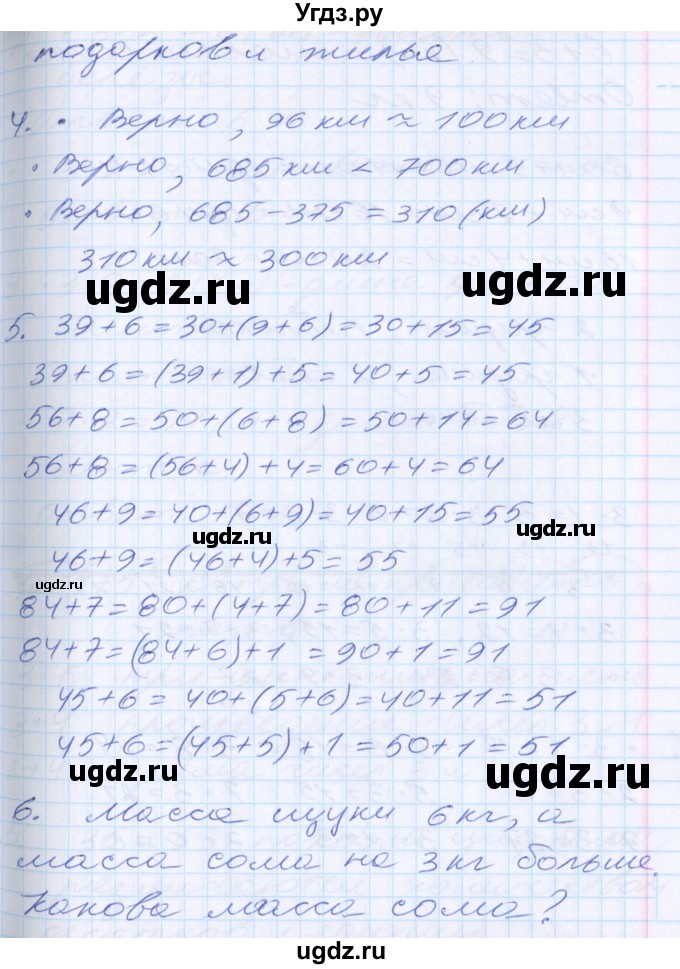 Угдз.ру
подарков и жилье
4. • Верно, 96 км ≈ 100 км
• Верно, 685 км < 700 км
• Верно, 685 - 375 = 310 (км)
310 км ≈ 300 км
ugdz.ru ugdz.ru
5. 39 + 6 = 30 + (9 + 6) = 30 + 15 = 45
39 + 6 = (39 + 1) + 5 = 40 + 5 = 45
56 + 8 = 50 + (6 + 8) = 50 + 14 = 64
56 + 8 = (56 + 4) + 4 = 60 + 4 = 64
46 + 9 = 40 + (6 + 9) = 40 + 15 = 55
ugdz.ru ugdz.ru
46 + 9 = (46 + 4) + 5 = 55
ugdz.ru
84 + 7 = 80 + (4 + 7) = 80 + 11 = 91
84 + 7 = (84 + 6) + 1 = 90 + 1 = 91
45 + 6 = 40 + (5 + 6) = 40 + 11 = 51
45 + 6 = (45 + 5) + 1 = 50 + 1 = 51
ugdz.ru ugdz.ru
6. Масса щуки 6 кг, а
масса сома на 3 кг больше.
Какова масса сома?
ugdz.ru